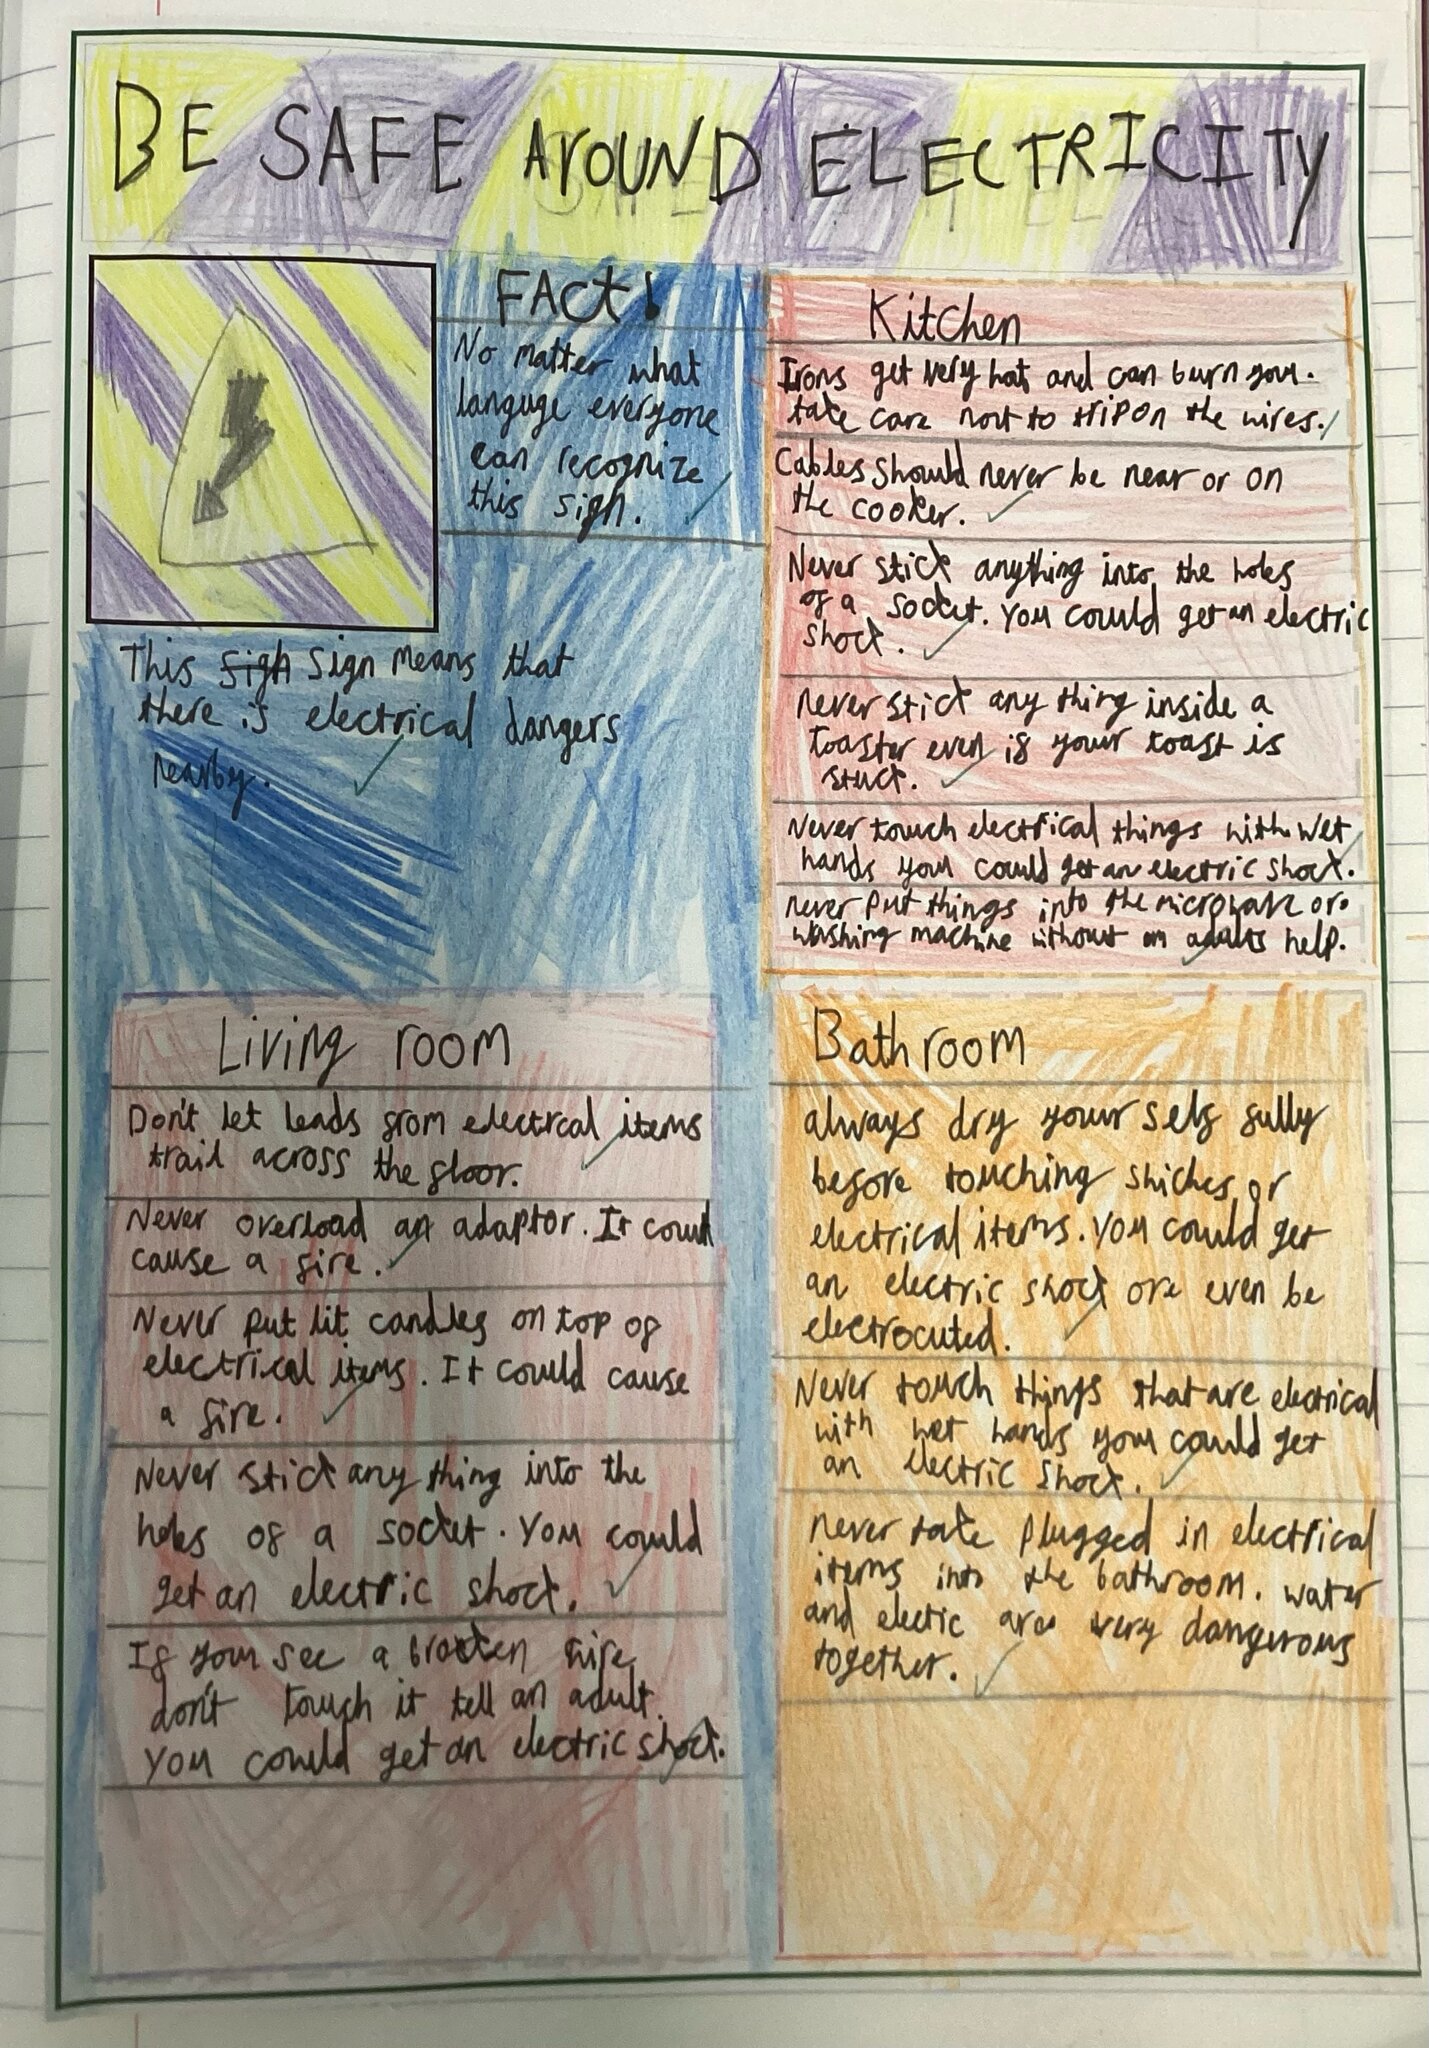 BE SAFE AROUND ELECTRICITY
FAct!
No matter what
languge everyone
can recognize
this sign.
This sigh sign means that
there is electrical dangers
nearby.
Kitchen
Irons get very hot and can burn you.
take care not to trip on the wires.
Cables should never be near or on
the cooker.
Never stick anything into the holes
of a socket. You could get an electric
shock.
never stick any thing inside a
toaster even if your toast is
stuck.
Never touch electrical things with wet
hands you could get an electric shock.
never put things into the microwave or
washing machine without an adults help.
Living room
Don't let leads from electrcal items
trail across the floor.
Never overload an adaptor. It could
cause a fire.
Never put lit candles on top of
electrical items. It could cause
a fire.
Never stick any thing into the
holes of a socket. You could
get an electric shock.
If you see a broken wire
don't touch it tell an adult.
You could get an electric shock.
Bathroom
always dry your self fully
before touching or
electrical items. You could get
an electric shock ore even be
electrocuted.
Never touch things that are electrical
with wet hands you could get
an electric shock.
never take plugged in electrical
items into the bathroom. water
and electic are very dangerous
together.